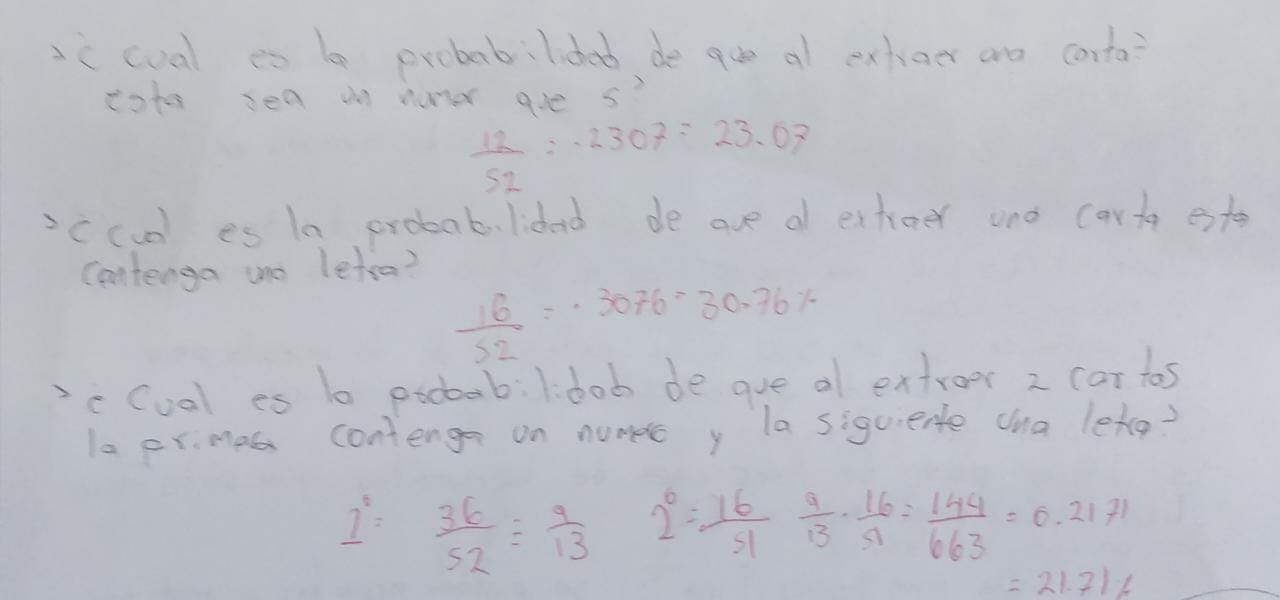 >¿ cual es la probabilidad de que al extraer una carta?
esta sea un numer que 5?
12/52 = .2307 = 23.07
>¿ cual es la probabilidad de que al extraer una carta esta
contenga una letra?
16/52 = .3076 = 30.76%
>¿ Cual es la probabilidad de que al extraer 2 cartas
la primera contenga un numero y la siguiente una letra?
1°= 36/52 = 9/13 2°= 16/51 9/13 . 16/51 = 144/663 = 0.2171
= 21.71%